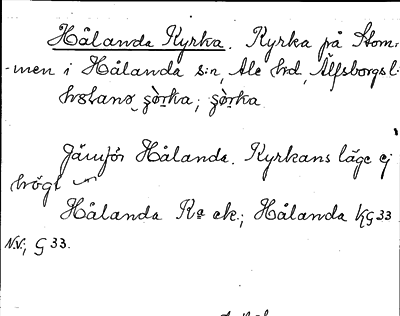 Hålanda Kyrka. Kyrka på Stom-
-men i Hålanda s:n, Ale hrd, Älfsborgs l.
Jämför Hålanda. Kyrkans läge ej
högt
Hålanda Ka ek.; Hålanda KG33
N.V.; G 33.